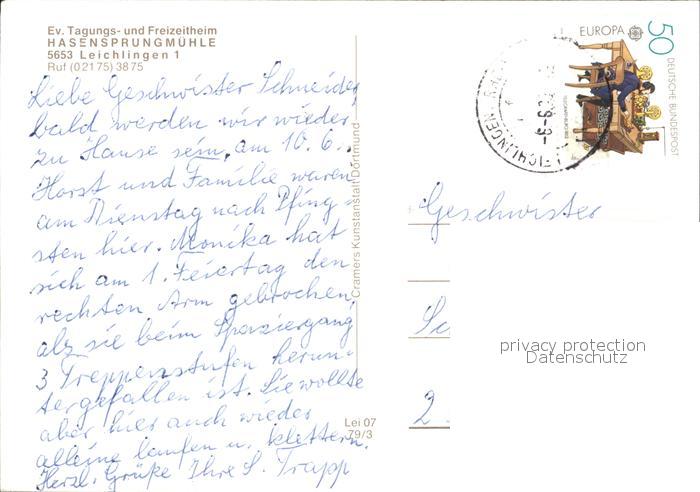 Ev. Tagungs- und Freizeitheim
HASENSPRUNGMÜHLE
5653 Leichlingen 1
Ruf (02175) 3875
Liebe Geschwister Schneider,
bald werden wir wieder
zu Hause sein, am 10. 6..
Horst und Familie waren
am Dienstag nach Pfing-
sten hier. Monika hat
sich am 1. Feiertag den
rechten Arm gebrochen,
als sie beim Spaziergang
3 Treppenstufen herun-
tergefallen ist. Sie wollte
aber hier auch wieder
alleine laufen u. klettern.
Herzl. Grüße Ihre S. Trapp
Cramers Kunstanstalt Dortmund
Lei 07
79/3
EUROPA
50
DEUTSCHE BUNDESPOST
LEICHLINGEN
Geschwister
Sc
2
privacy protection
Datenschutz